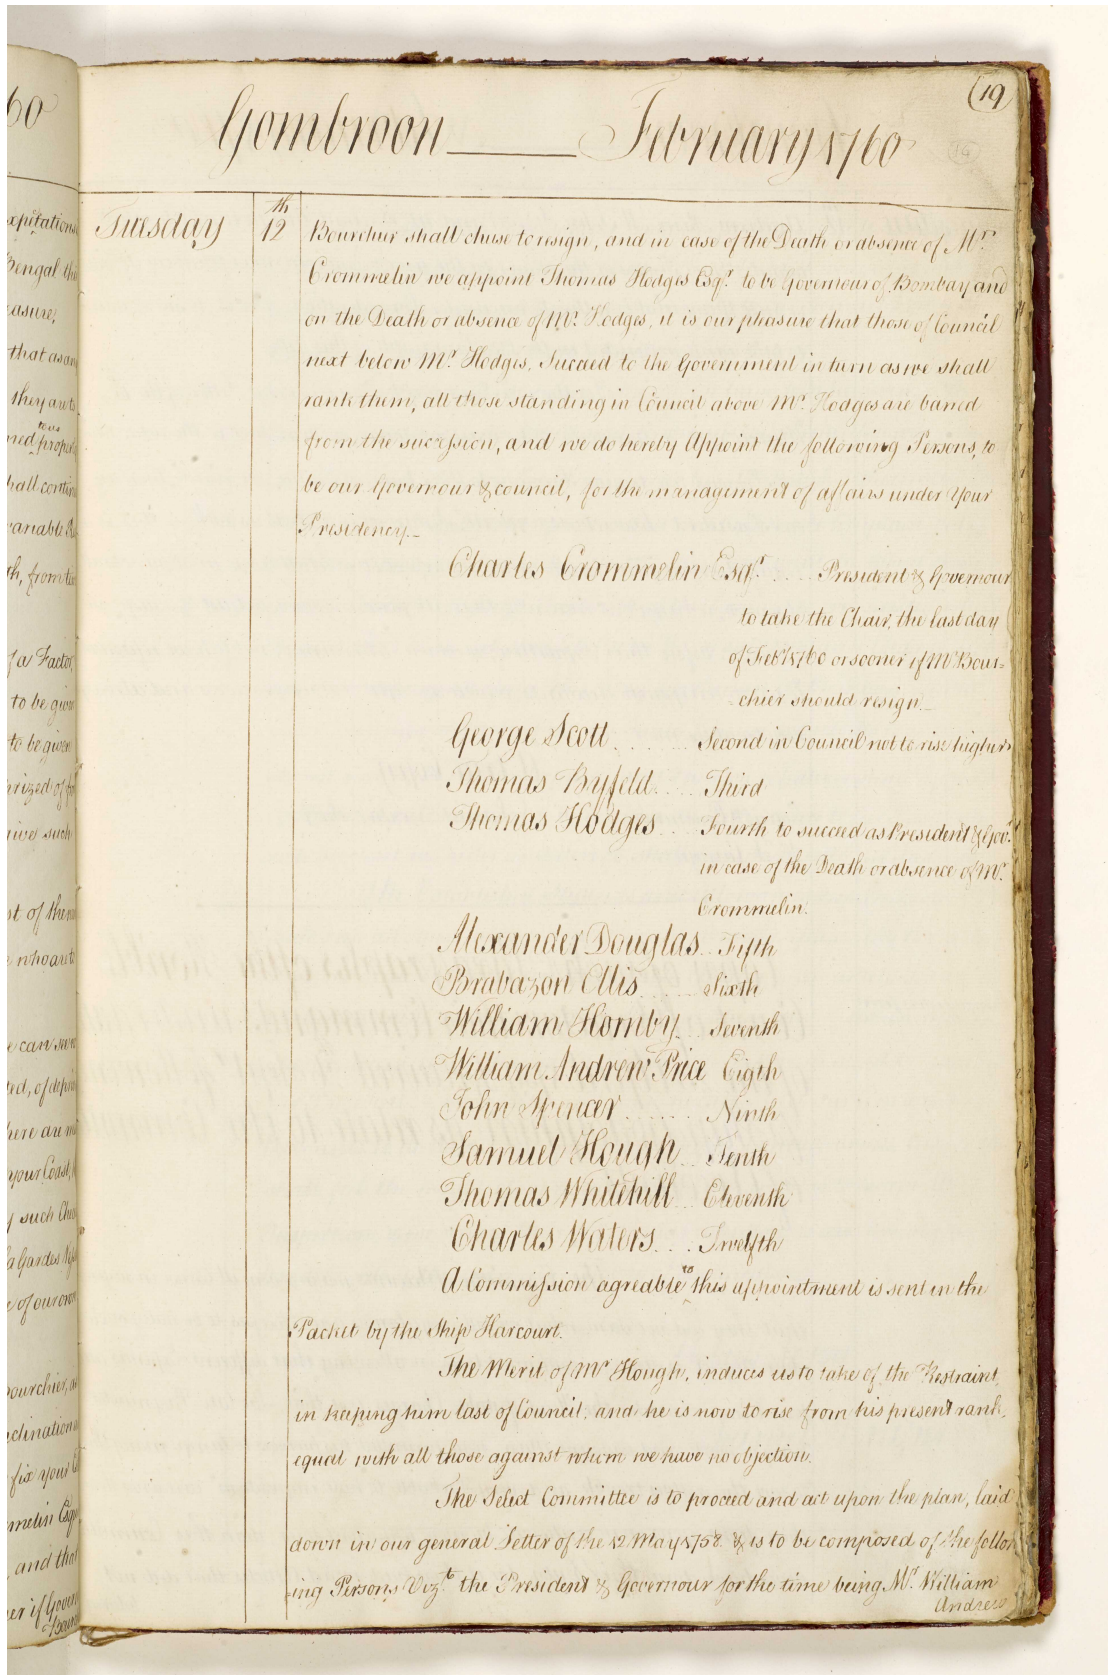 19
Gombroon February 1760
Tuesday 12th Bourchier shall chuse to resign, and in case of the Death or absence of Mr.
Crommelin we appoint Thomas Hodges Esqr. to be Governour of Bombay and
on the Death or absence of Mr. Hodges, it is our pleasure that those of Council
next below Mr. Hodges, Succeed to the Government in turn as we shall
rank them, all those standing in Council above Mr. Hodges are barred
from the succession, and we do hereby Appoint the following Persons, to
be our Governour & council, for the management of affairs under Your
Presidency.-
Charles Crommelin Esqr. .... President & Governour
to take the Chair, the last day
of Febry. 1760 or sooner if Mr. Bour-
chier should resign.-
George Scott ...... Second in Council not to rise higher
Thomas Byfeld .... Third
Thomas Hodges ... Fourth to succeed as President & Govr.
in case of the Death or absence of Mr.
Crommelin.
Alexander Douglas .. Fifth
Brabazon Ellis ..... Sixth
William Hornby ... Seventh
William Andrew Price Eigth
John Spencer ...... Ninth
Samuel Hough .. Tenth
Thomas Whitehill ... Eleventh
Charles Waters ... Twelfth
A Commission agreable to this appointment is sent in the
Packet by the Ship Harcourt.
The Merit of Mr. Hough, induces us to take of the Restraint,
in keeping him last of Council, and he is now to rise from his present rank,
equal with all those against whom we have no objection.
The Select Committee is to proceed and act upon the plan, laid
down in our general Letter of the 12 May 1758. & is to be composed of the follow
ing Persons Vizt. the President & Governour for the time being Mr. William
Andrew